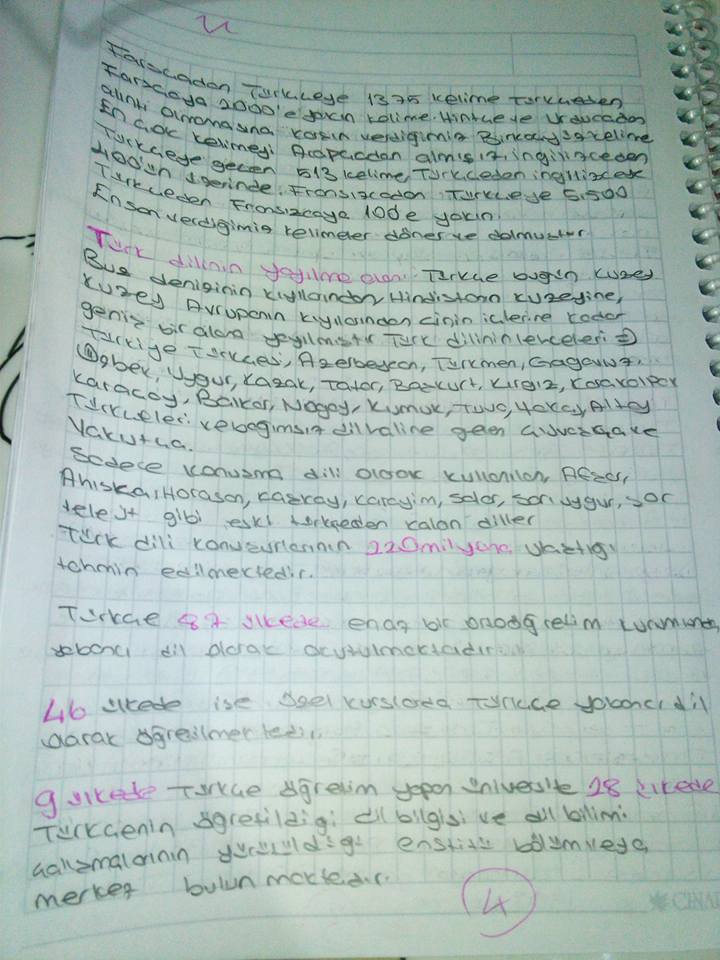 u
Farsçadan Türkçeye 1375 kelime Türkçeden
Farsçaya 2000'e yakın kelime. Hintçe ve Urducadan
alıntı olmamasına karşın verdiğimiz Birkaç kelime
En çok kelimeyi Arapçadan almışız ingilizceden
Türkçeye geçen 513 kelime, Türkçeden ingilizceye
400'ün üzerinde. Fransızcadan Türkçeye 5.500
Türkçeden Fransızcaya 100e yakın.
En son verdiğimiz kelimeler döner ve dolmuştur
Türk dilinin yayılma alanı: Türkçe bugün kuzey
Buz denizinin kıyılarından Hindistanın kuzeyine,
kuzey Avrupanın kıyılarından çinin içlerine kadar
geniş bir alana yayılmıştır Türk dilinin lehçeleri =>
Türkiye Türkçesi, Azerbeycan, Türkmen, Gagavuz,
Özbek, Uygur, Kazak, Tatar, Başkurt, Kırgız, Karakalpak
Karaçay, Balkar, Nogay, Kumuk, Tuva, Hakas, Altay
Türkçeleri ve bağımsız dil haline gelen çuvaşça ve
Yakutça.
Sadece konuşma dili olarak kullanılan, Afşar,
Ahıska, Horasan, Kaşkay, Karayim, salar, sarı uygur, şor
teleüt gibi eski türkçeden kalan diller
Türk dili konuşurlarının 220 milyona ulaştığı
tahmin edilmektedir.
Türkçe 87 ülkede en az bir ortaöğretim kurumunda
yabancı dil olarak okutulmaktadır.
46 ülkede ise özel kurslarda Türkçe yabancı dil
olarak öğretilmektedir.
9 ülkede Türkçe öğretim yapan üniversite 28 ülkede
Türkçenin öğretildiği dil bilgisi ve dil bilimi
çalışmalarının yürütüldüğü enstitü bölüm veya
merkez bulunmaktadır.
4